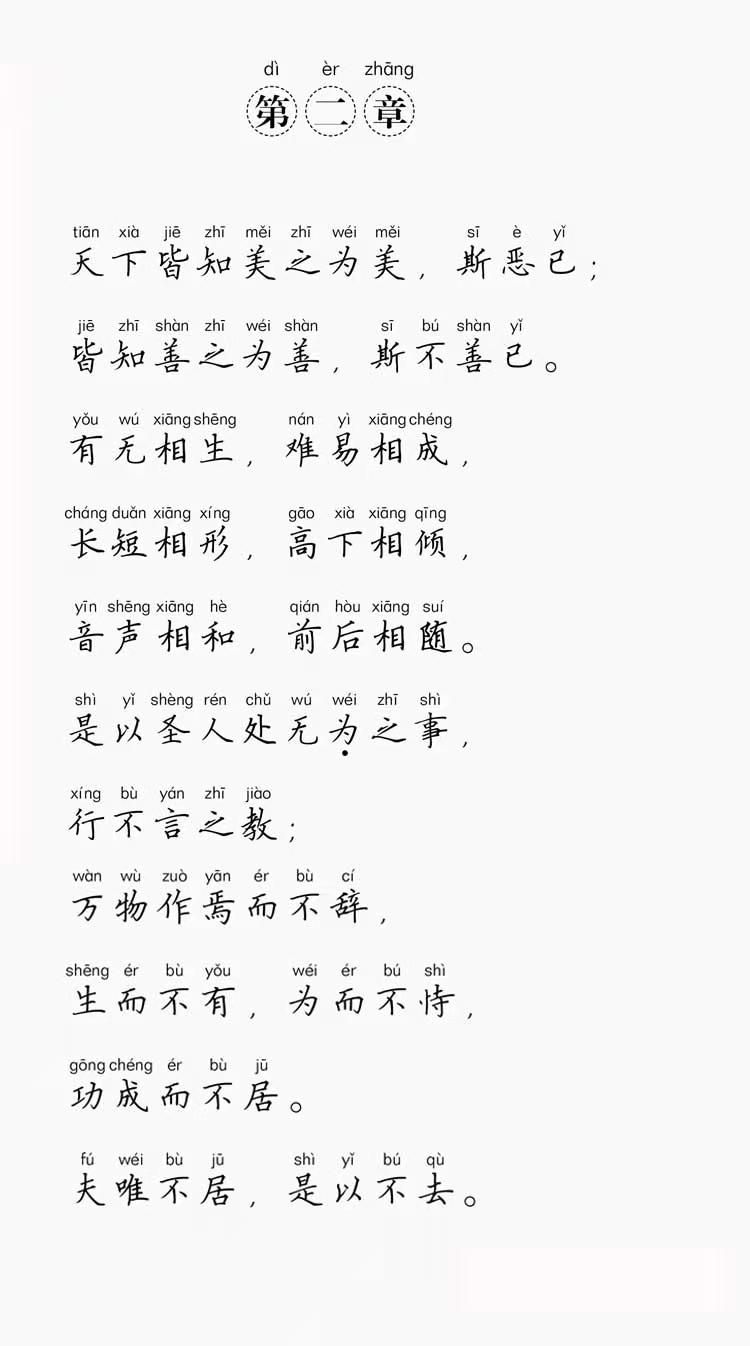 dì èr zhāng
第二章
tiān xià jiē zhī měi zhī wéi měi sī è yǐ
天下皆知美之为美，斯恶已；
jiē zhī shàn zhī wéi shàn sī bú shàn yǐ
皆知善之为善，斯不善已。
yǒu wú xiāng shēng nán yì xiāng chéng
有无相生，难易相成，
cháng duǎn xiāng xíng gāo xià xiāng qīng
长短相形，高下相倾，
yīn shēng xiāng hè qián hòu xiāng suí
音声相和，前后相随。
shì yǐ shèng rén chǔ wú wéi zhī shì
是以圣人处无为之事，
xíng bù yán zhī jiào
行不言之教；
wàn wù zuò yān ér bù cí
万物作焉而不辞，
shēng ér bù yǒu wéi ér bú shì
生而不有，为而不恃，
gōng chéng ér bù jū
功成而不居。
fú wéi bù jū shì yǐ bú qù
夫唯不居，是以不去。